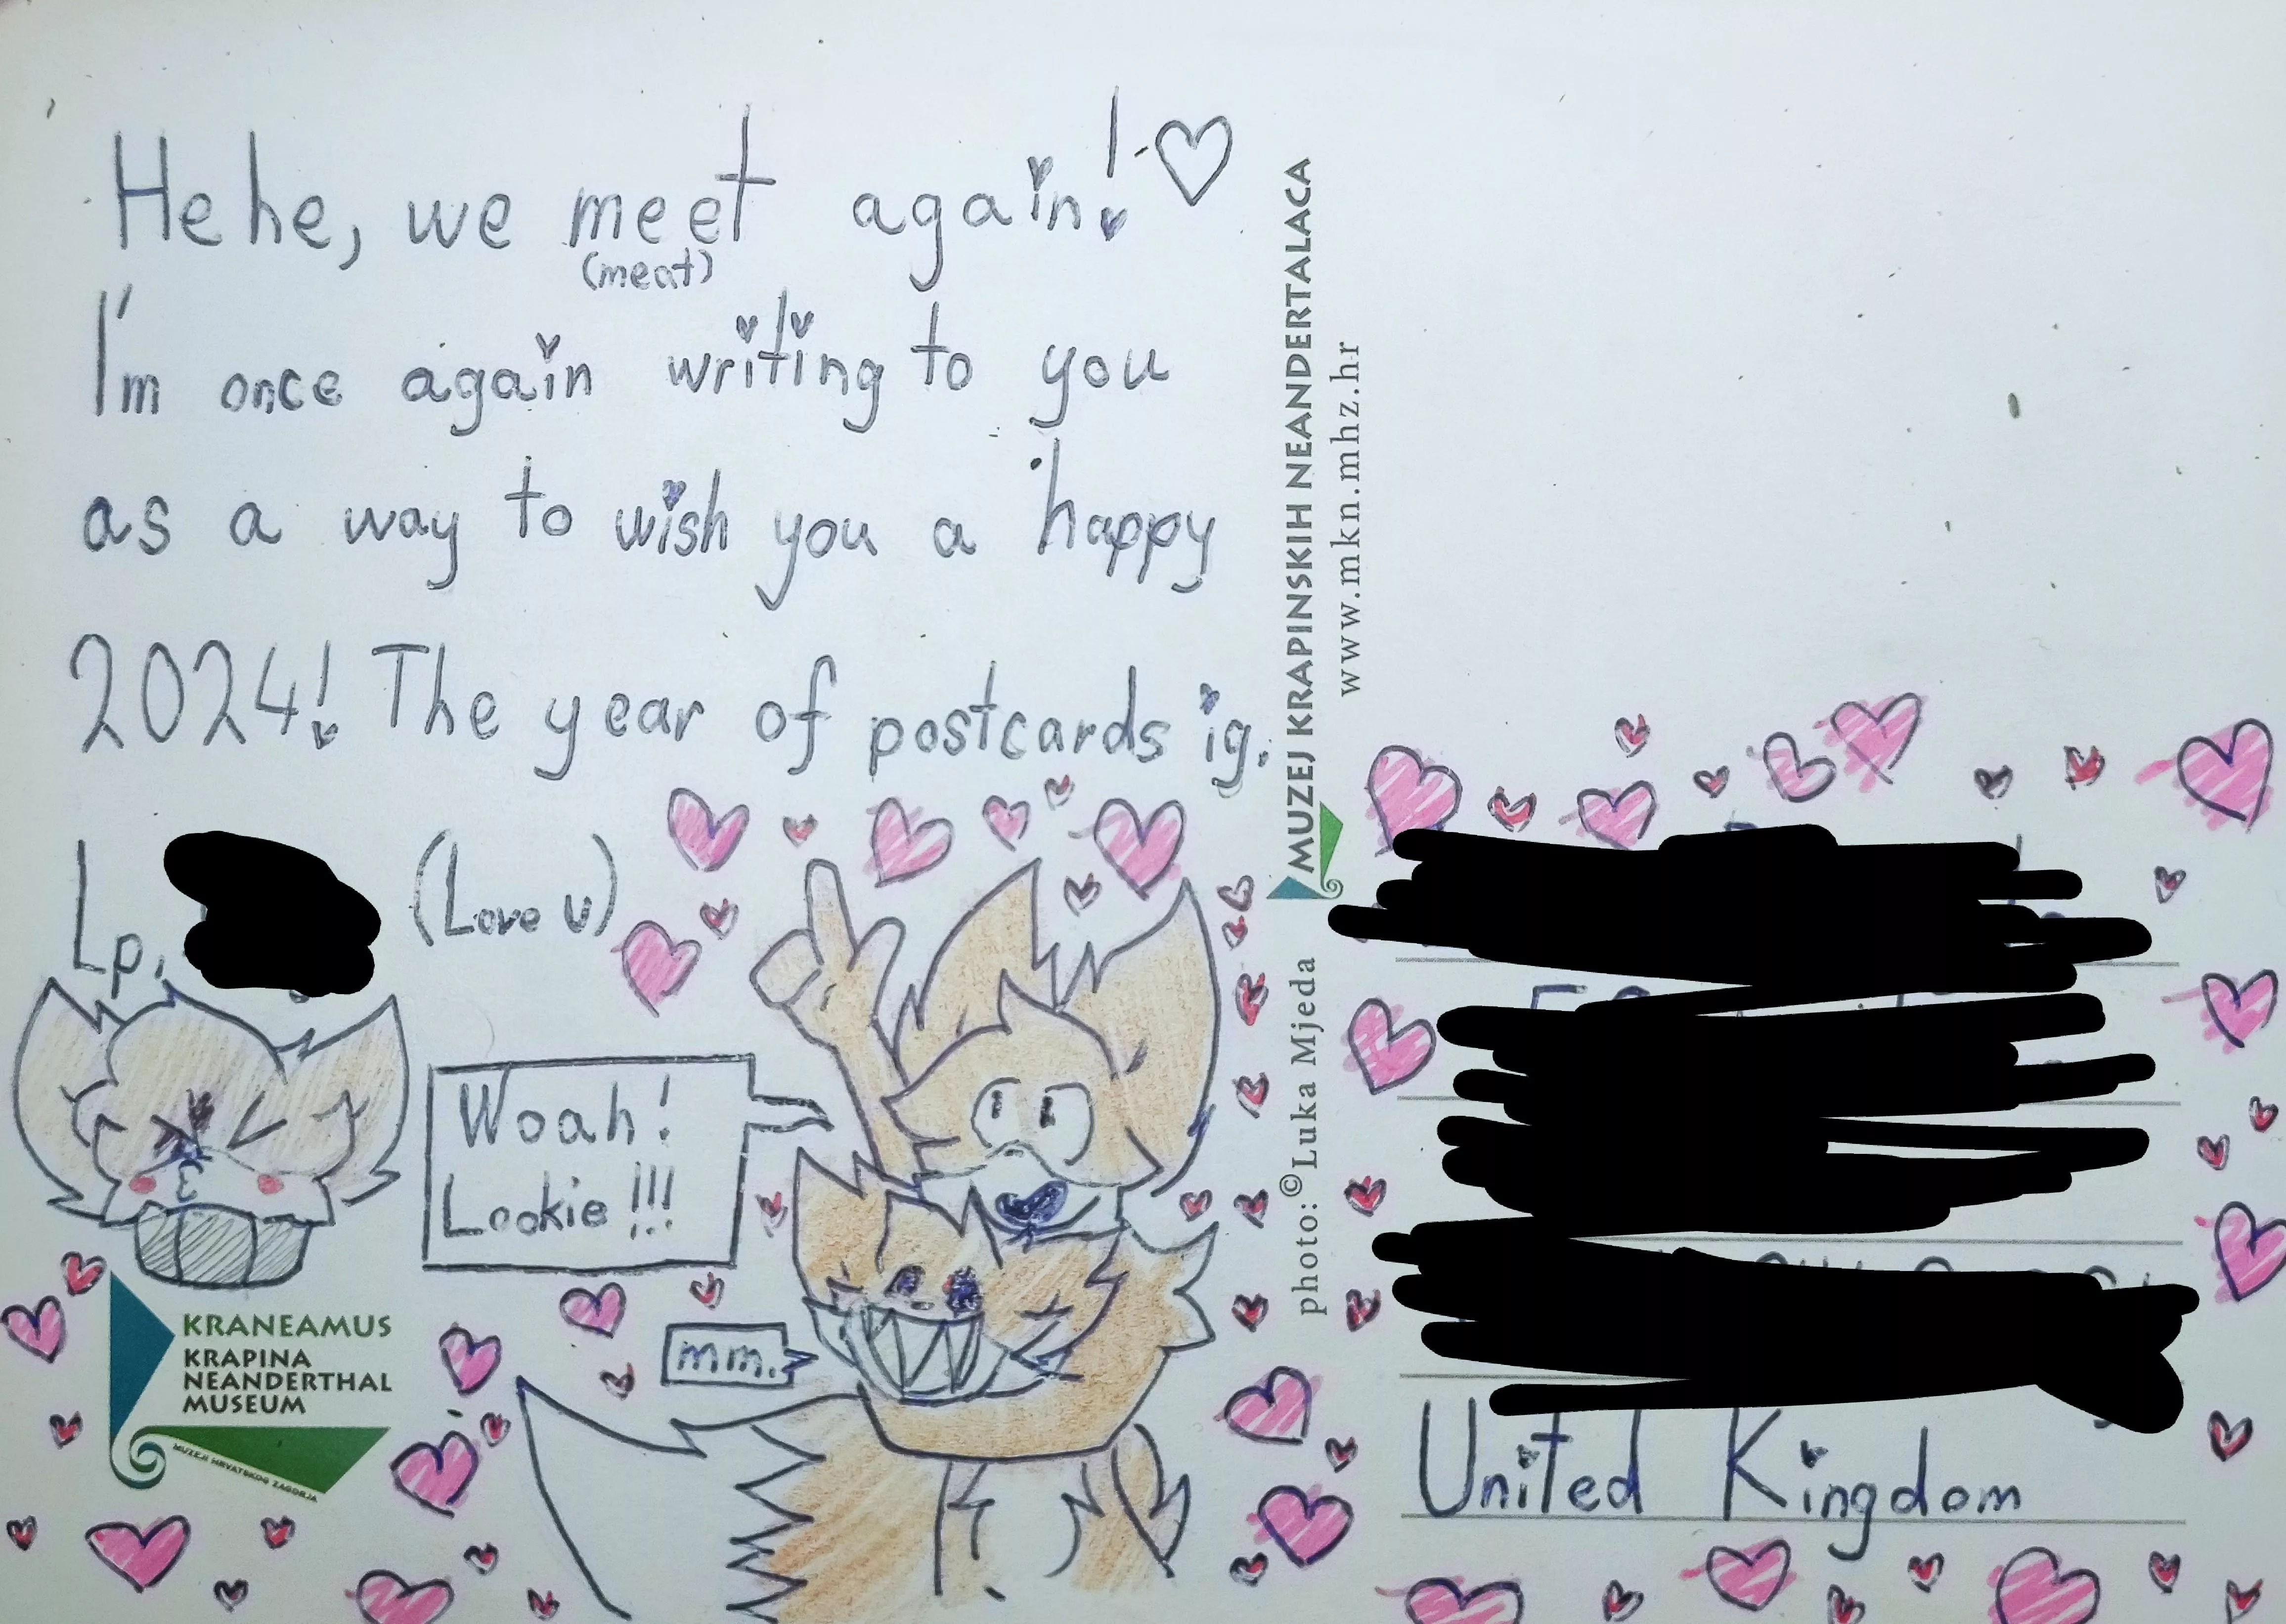 Hehe, we meet again!
(meat)
I'm once again writing to you
as a way to wish you a happy
2024! The year of postcards ig.
Lp,
(Love u)
Woah!
Lookie!!!
mm.
KRANEAMUS
KRAPINA
NEANDERTHAL
MUSEUM
MUZEJI HRVATSKOG ZAGORJA
MUZEJ KRAPINSKIH NEANDERTALACA
www.mkn.mhz.hr
photo: ©Luka Mjeda
United Kingdom